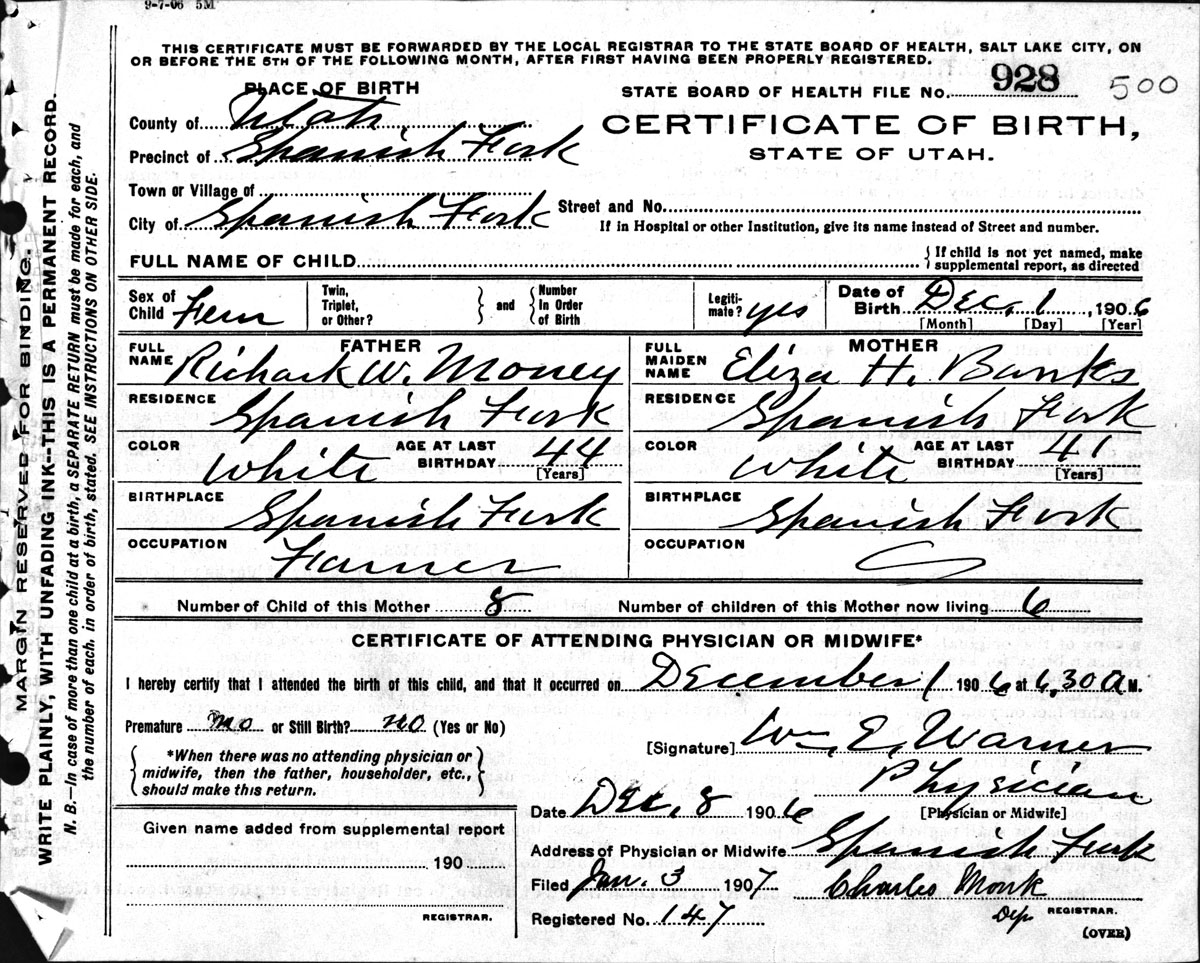 9-7-06 5M
THIS CERTIFICATE MUST BE FORWARDED BY THE LOCAL REGISTRAR TO THE STATE BOARD OF HEALTH, SALT LAKE CITY, ON
OR BEFORE THE 5TH OF THE FOLLOWING MONTH, AFTER FIRST HAVING BEEN PROPERLY REGISTERED.
PLACE OF BIRTH
STATE BOARD OF HEALTH FILE No. 928 500
County of Utah
CERTIFICATE OF BIRTH,
Precinct of Spanish Fork
STATE OF UTAH.
Town or Village of
City of Spanish Fork
Street and No.
If in Hospital or other Institution, give its name instead of Street and number.
FULL NAME OF CHILD
{ If child is not yet named, make
supplemental report, as directed
Sex of Child Fem
Twin, Triplet, or Other?
} and {
Number In Order of Birth
Legiti-mate? yes
Date of Birth Dec. 1, 1906
[Month] [Day] [Year]
FATHER
FULL NAME Richark W. Money
RESIDENCE Spanish Fork
COLOR White
AGE AT LAST BIRTHDAY 44
[Years]
BIRTHPLACE Spanish Fork
OCCUPATION Farmer
MOTHER
FULL MAIDEN NAME Eliza H. Banks
RESIDENCE Spanish Fork
COLOR White
AGE AT LAST BIRTHDAY 41
[Years]
BIRTHPLACE Spanish Fork
OCCUPATION
Number of Child of this Mother 8
Number of children of this Mother now living 6
CERTIFICATE OF ATTENDING PHYSICIAN OR MIDWIFE*
I hereby certify that I attended the birth of this child, and that it occurred on December 1 1906 at 6,30 A M.
Premature no or Still Birth? no (Yes or No)
{ *When there was no attending physician or
midwife, then the father, householder, etc.,
should make this return. }
[Signature] Wm. E. Warner
Physician
[Physician or Midwife]
Date Dec. 8 1906
Given name added from supplemental report
190
REGISTRAR.
Address of Physician or Midwife Spanish Fork
Filed Jan. 3 1907
Charles Monk
Dep REGISTRAR.
Registered No. 147
(OVER)
MARGIN RESERVED FOR BINDING.
WRITE PLAINLY, WITH UNFADING INK--THIS IS A PERMANENT RECORD.
N. B.—In case of more than one child at a birth, a SEPARATE RETURN must be made for each, and
the number of each, in order of birth, stated. SEE INSTRUCTIONS ON OTHER SIDE.